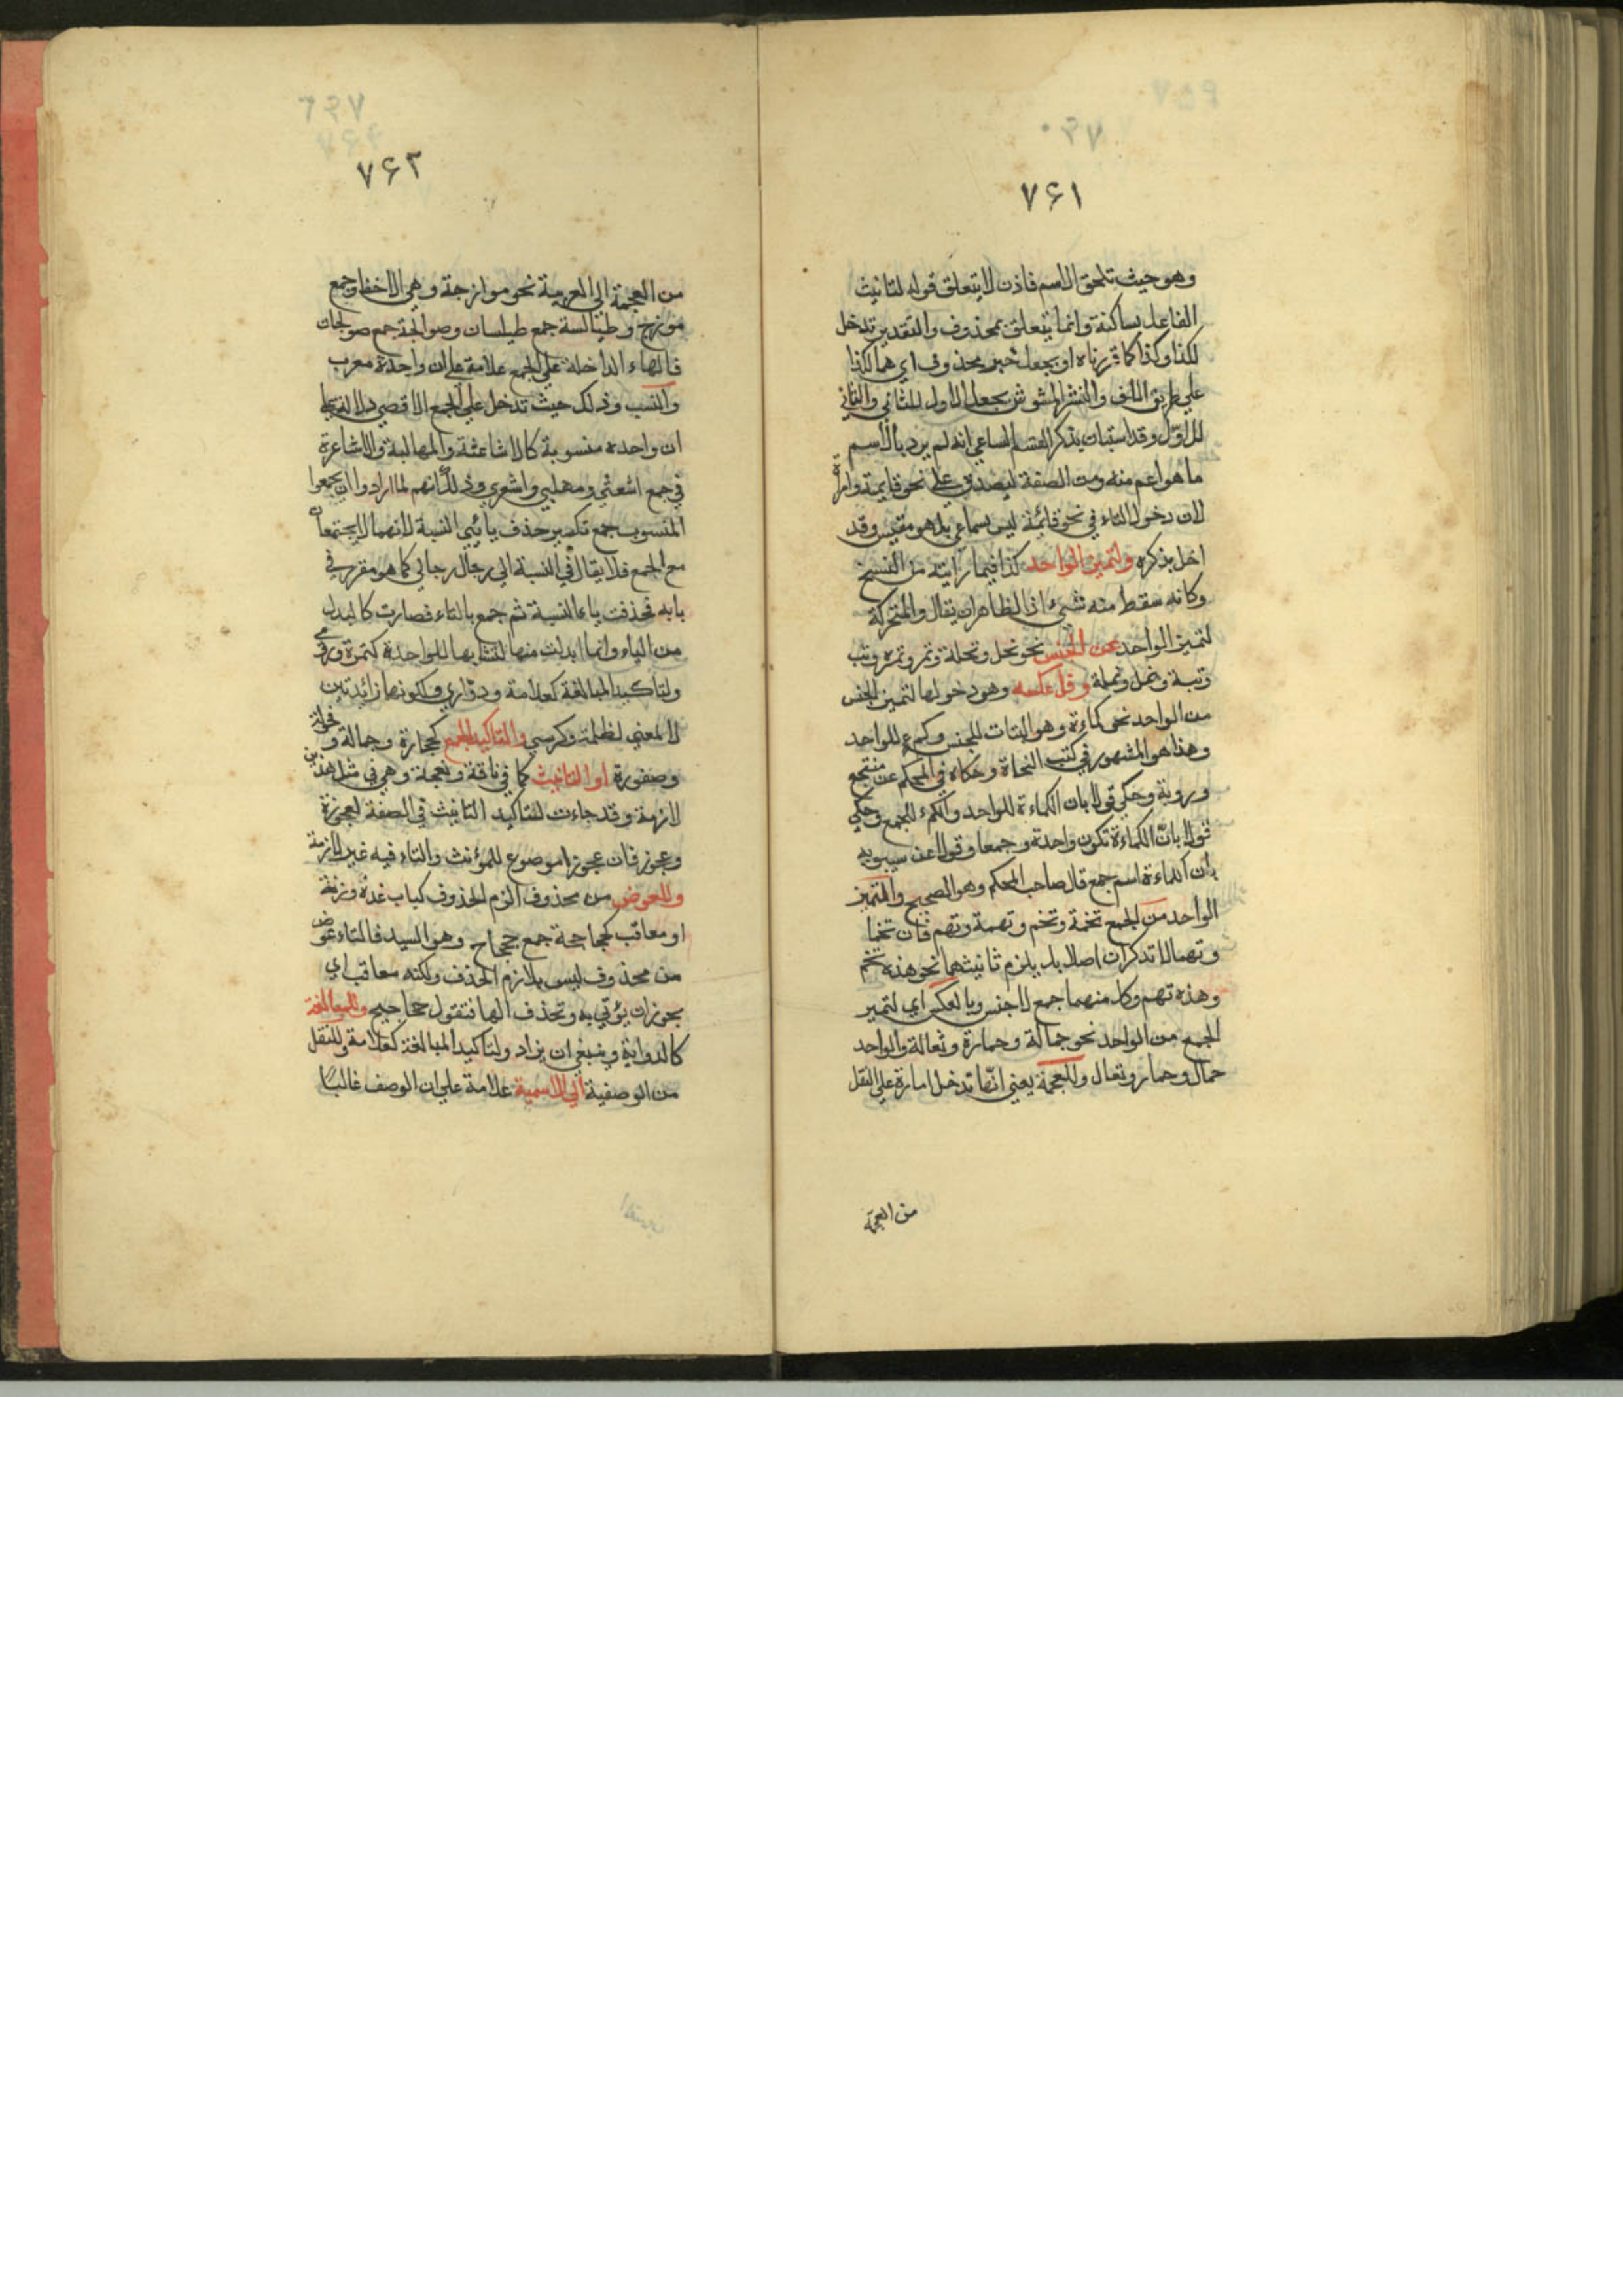 ۷۶۱
وهو حيث تلحق الاسم فاذن لا يتعلق قوله لتانيث
الفاعل بساكنة وانما يتعلق بمحذوف والتقدير تدخل
لكذا وكذا كما قررناه او يجعل خبر محذوف اي هما لكذا
علي طريق اللف والنشر المشوش بجعل الاول للثاني والثاني
للاول وقد استبان بذكر القسم الساعي انه لم يرد بالاسم
ما هو اعم منه ومن الصفة ليصدق علي نحو قايمة
لان دخول التاء في نحو قائمة ليس بسماعي بل هو مقيس وقد
اخل بذكره ولتميز الواحد كذا فيما رايته من النسخ
وكانه سقط منه شيء اذ الظاهر ان يقال والمتحركة
لتميز الواحد عن الجنس نحو نحل ونحلة وتمر وتمره وتب
وتبة ونمل ونملة وقل عكسه وهو دخولها لتميز الجنس
من الواحد نحو كماءة وهو البتات للجنس وكمء للواحد
وهذا هو المشهور في كتب النحاة وحكاه في المحكم عن منتجع
وروبة وحكي قولا بان الكماءة للواحد والكمء للجمع وحكي
قولا بان الكماءة تكون واحدة وجمعا وقولا عن سيبويه
بان كماءة اسم جمع قال صاحب المحكم وهو الصحيح والتميز
الواحد من الجمع تخمة وتخم وتهمة وتهم فان تخما
وتهما لا تذكران اصلا بل يلزم تانيثهما نحو هذه تخم
وهذه تهم وكل منهما جمع لا جنس وبالعكس اي لتميز
الجمع من الواحد نحو جمالة وحمارة وثعالة والواحد
حمال وحمار وتعال وللعجمة يعني انها تدخل امارة علي النقل
من العجمة
۷۶۲
من العجمة الي العربية نحو موازجة وهي الاخفاف جمع
موزج وطيالسة جمع طيلسان وصوالجة جمع صولجان
فالهاء الداخلة علي الجمع علامة علي ان واحدة معرب
والنسب وذلك حيث تدخل علي الجمع الاقصي دلالة علي
ان واحده منسوبة كالاشاعثة والمهالبة والاشاعرة
في جمع اشعثي ومهلبي واشعري وذلك لانهم لما ارادوا ان يجمعوا
المنسوب جمع تكسير حذف يائي النسبة لانهما لا يجتمعان
مع الجمع فلا يقال في النسبة الي رجال رجالي كما هو مقرر في
بابه فحذفت ياء النسبة ثم جمع بالتاء فصارت كالبدل
من الياء وانما ابدلت منها لتشابها للواحدة كتمرة ورومي
ولتاكيد المبالغة كعلامة ودواري ولكونها زائدتين
لا لمعني لظلمة وكرسي والتاكيد الجمع كحجارة وجمالة وفحولة
وصقورة او التانيث كما في ناقة ونعجة وهي في مثل هذين
لازمة وقد جاءت لتاكيد التانيث في الصفة لعجوزة
وعجوز فان عجوزا موضوع للمؤنث والتاء فيه غير لازمة
وللعوض من محذوف لزم الحذوف كباب عدة وزنة
او معاقب كحجاحجة جمع حجاح وهو السيد فالتاء عوض
من محذوف ليس بلازم الحذف ولكنه معاقب اي
يجوز ان يؤتي به وتحذف الها فتقول حجاجيح وللمبالغة
كالرواية وينبغي ان يزاد ولتاكيد المبالغة كعلامة وللنقل
من الوصفية الي الاسمية علامة علي ان الوصف غالبا